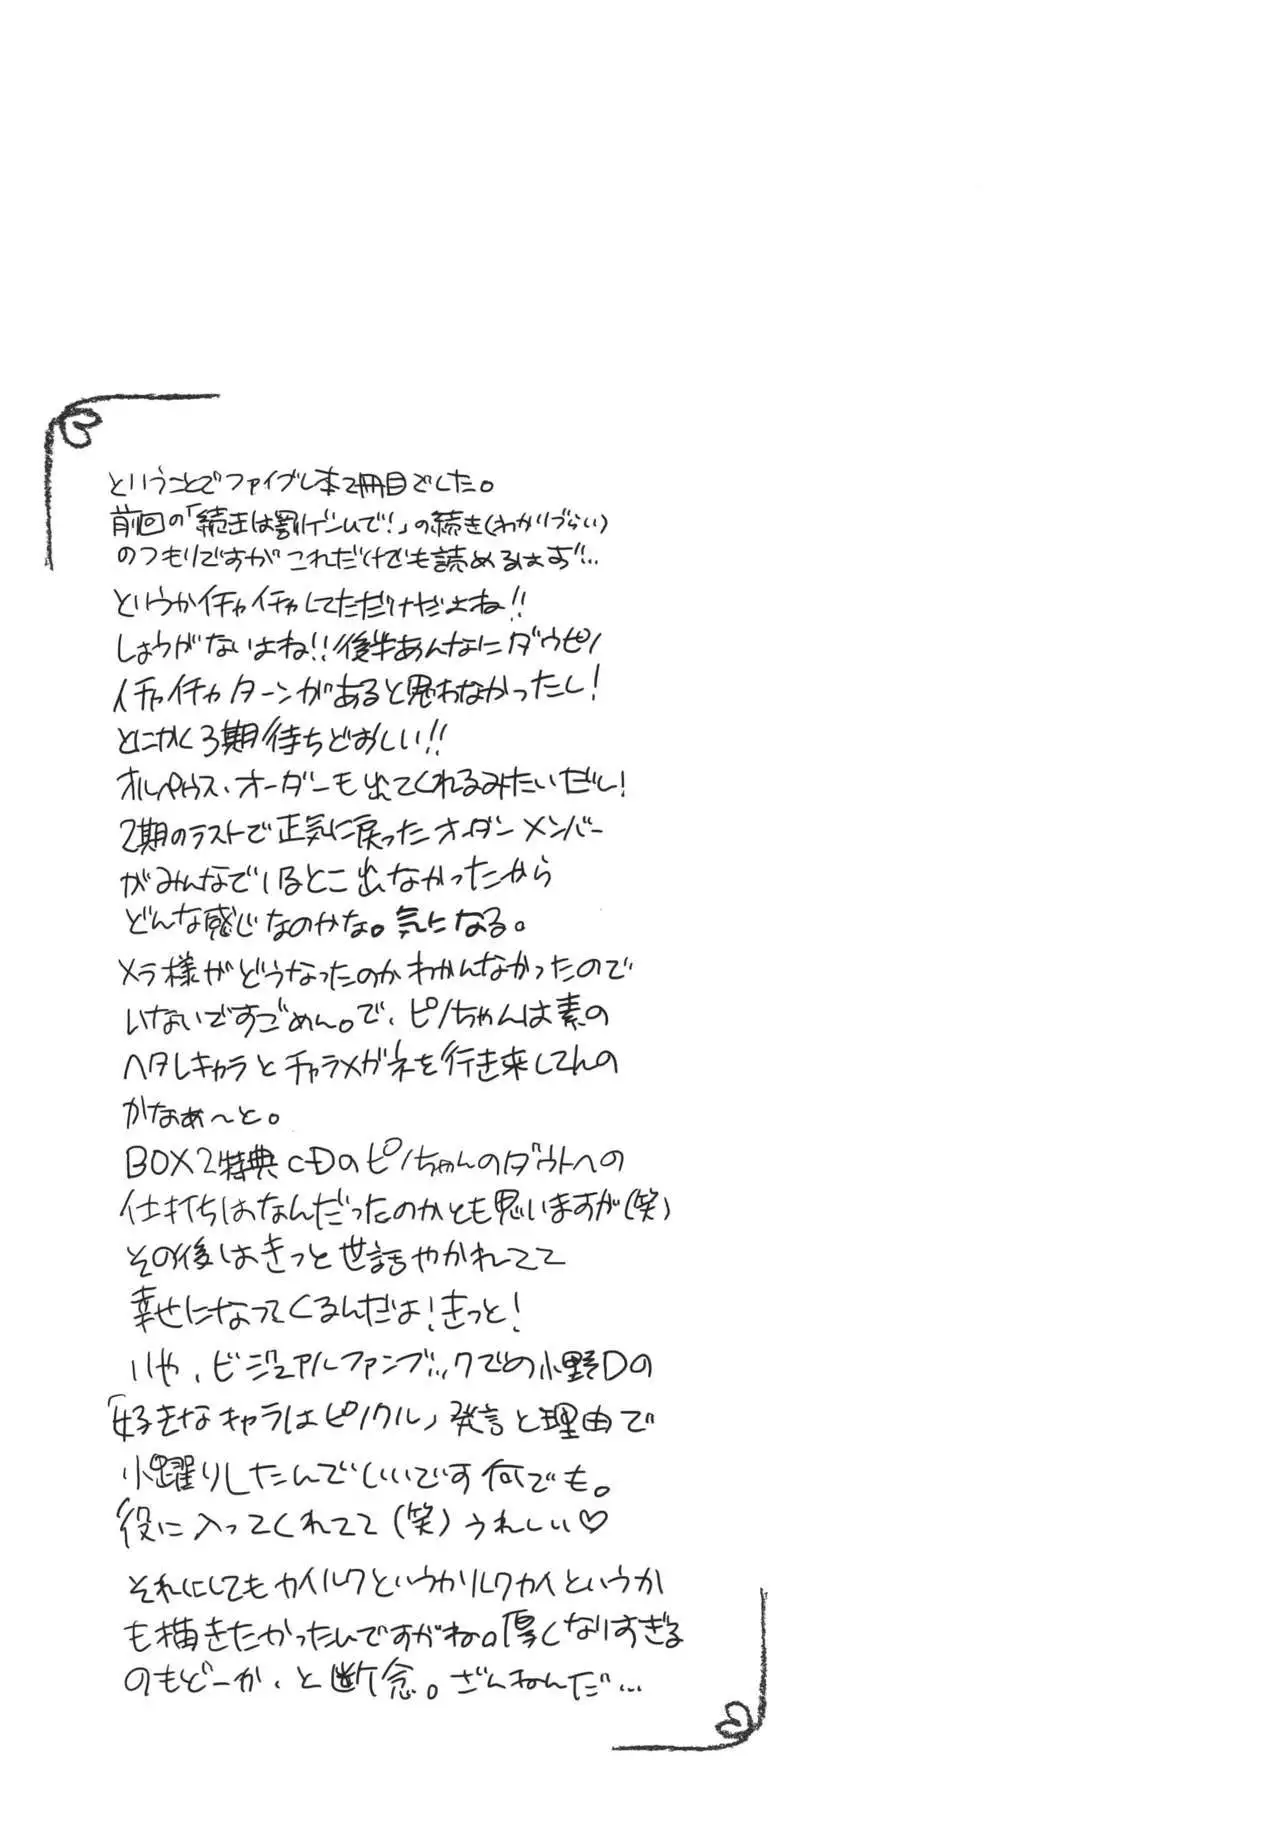 ということでファイブレ本2冊目でした。
前回の「続きは罰ゲームで!」の続き(わかりづらい)
のつもりですがこれだけでも読めるはず…
というかイチャイチャしてただけだよね!!
しょうがないよね!!後半あんなにダウピノ
イチャイチャターンがあると思わなかったし!
とにかく3期待ちどおしい!!
オルペウス・オーダーも出てくれるみたいだし!
2期のラストで正気に戻ったオーダーメンバー
がみんなでいるとこ出なかったから
どんな感じなのかな。気になる。
メラ様がどうなったのかわかんなかったので
いないですごめん。で、ピノちゃんは素の
ヘタレキャラとチャラメガネを行き来してんの
かなぁ〜と。
BOX2特典CDのピノちゃんのダウトへの
仕打ちはなんだったのかとも思いますが(笑)
その後はきっと世話やかれてて
幸せになってくるんだよ!きっと!
いや、ビジュアルファンブックでの小野Dの
「好きなキャラはピノクル」発言と理由で
小躍りしたんでいいです何でも。
役に入ってくれてて(笑)うれしい♡
それにしてもカイルクというかルクカイというか
も描きたかったんですがね。厚くなりすぎる
のもどーか、と断念。ざんねんだ…